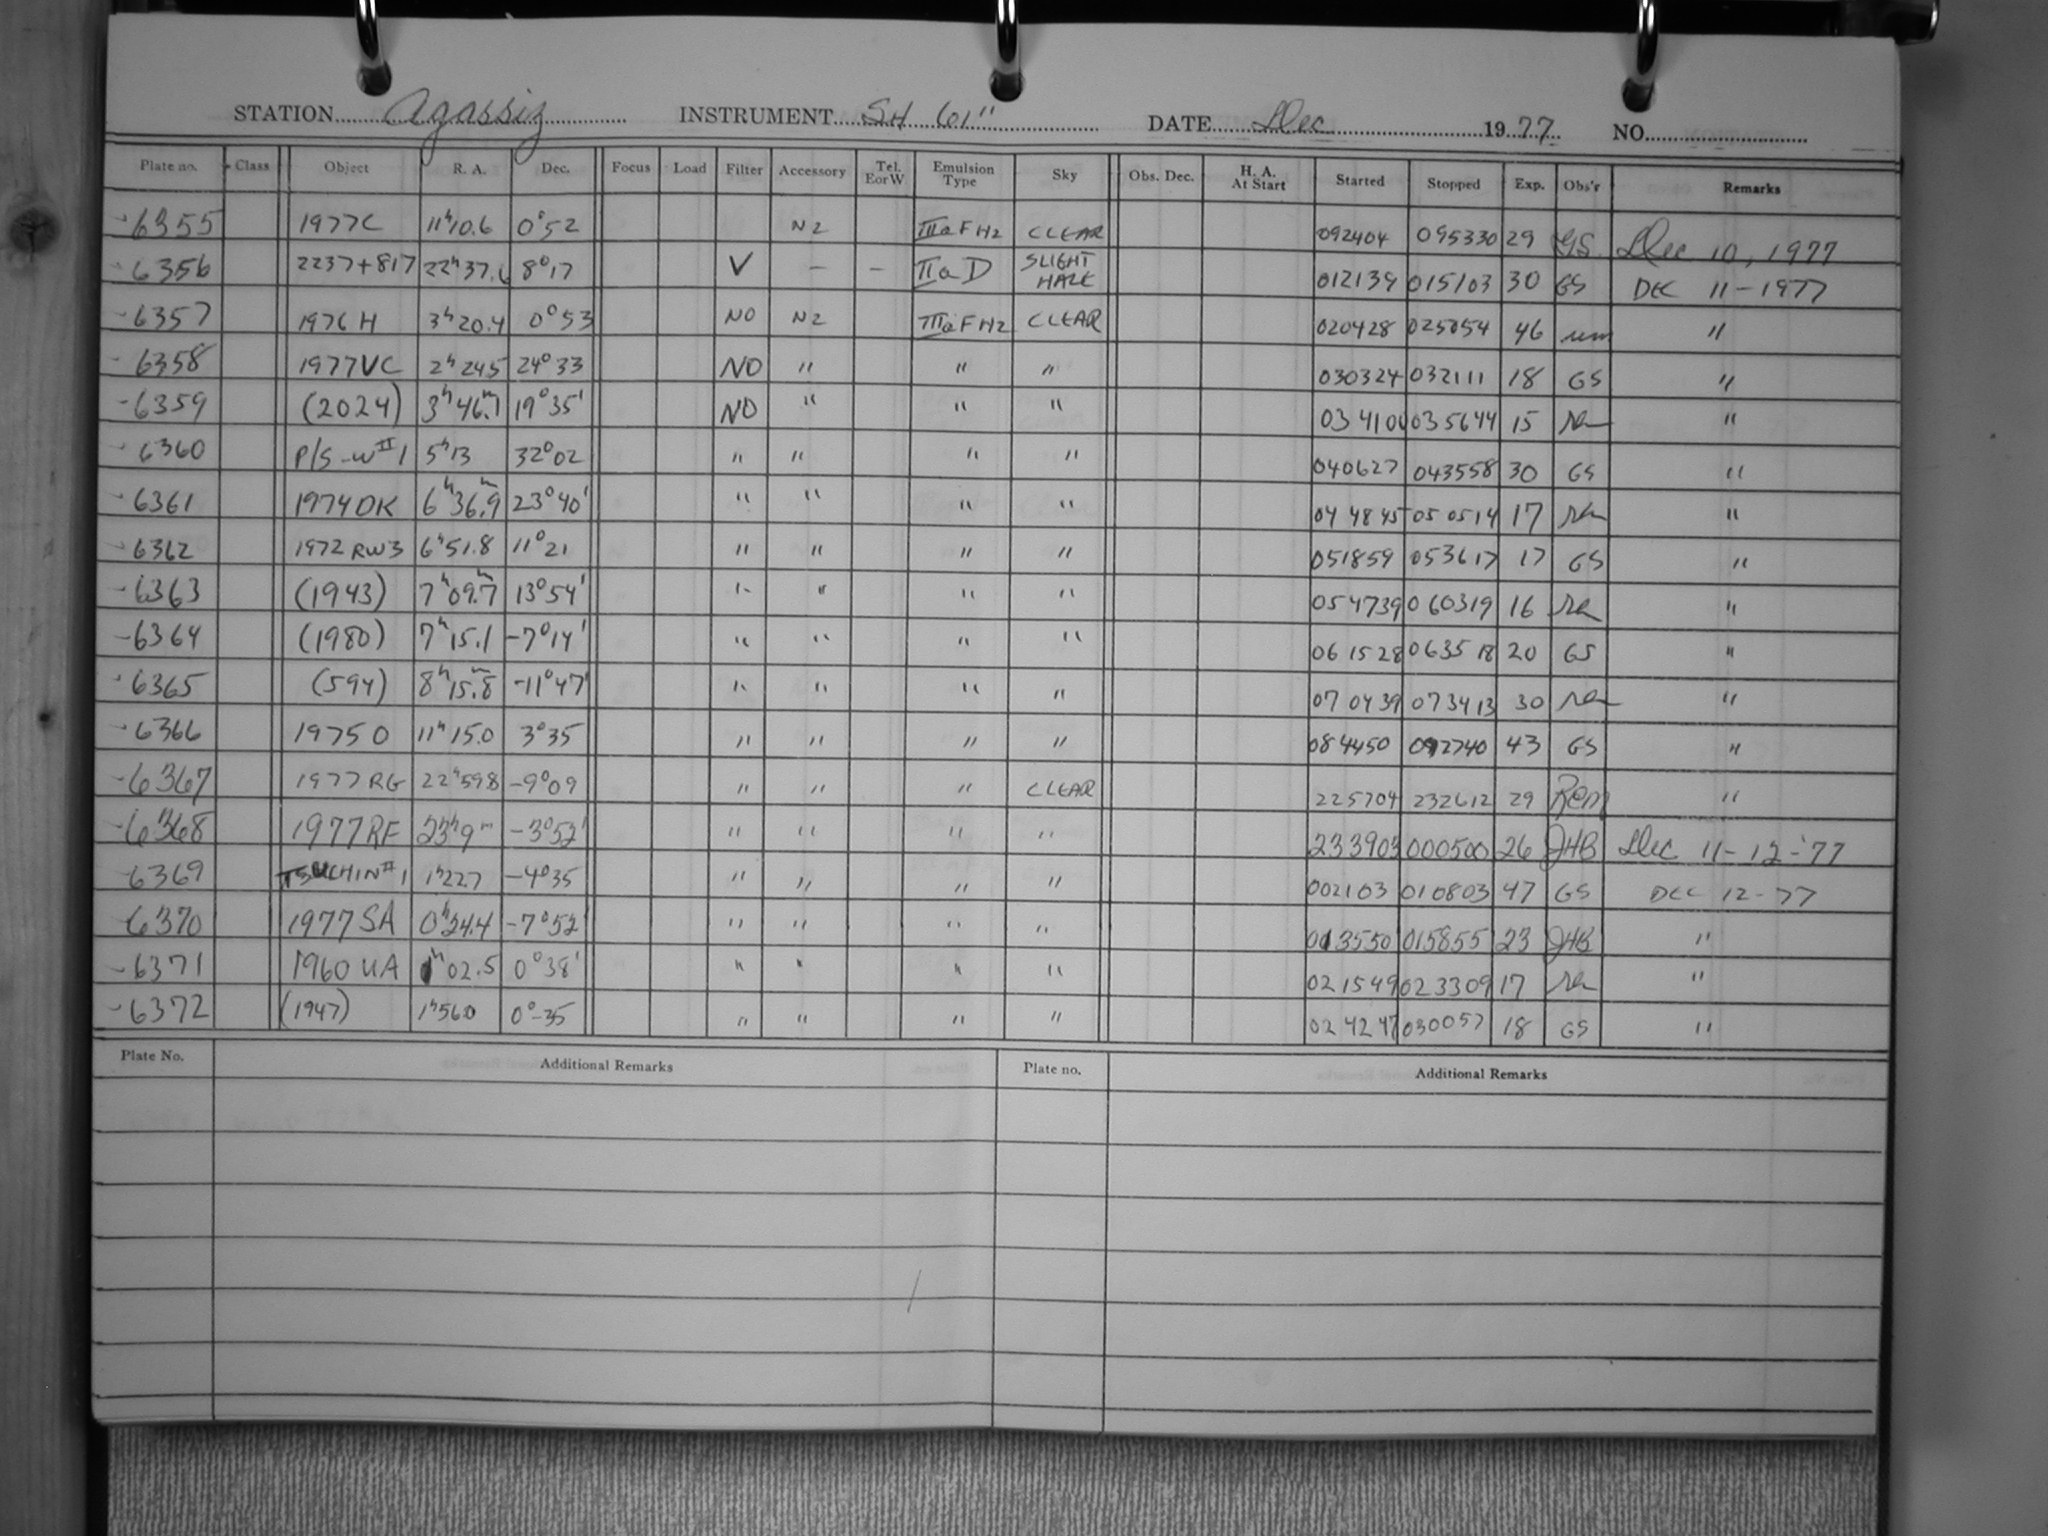 STATION Agassiz INSTRUMENT SH 61" DATE Dec 1977 NO.
Plate no. Class Object R. A. Dec. Focus Load Filter Accessory Tel. E or W Emulsion Type Sky Obs. Dec. H. A. At Start Started Stopped Exp. Obs'r Remarks
6355 1977C 11h10.6 0°52 N2 IIIaF H2 CLEAR 092404 095330 29 GS Dec 10, 1977
6356 2237+817 22h37.6 8°17 V — — IIaD SLIGHT HAZE 012139 015103 30 GS DEC 11-1977
6357 1976 H 3h20.4 0°53 NO N2 IIIaF H2 CLEAR 020428 025054 46 "
6358 1977VC 2h24.5 24°33 NO " " " 030324 032111 18 GS "
6359 (2024) 3h46m.1 19°35' NO " " " 034100 035644 15 "
6360 P/S-WII1 5h13 32°02 " " " " 040627 043558 30 GS "
6361 1974DK 6h36m.9 23°40' " " " " 044845 050514 17 "
6362 1972 RW3 6h51.8 11°21 " " " " 051859 053617 17 GS "
6363 (1943) 7h09m.7 13°54' " " " " 054739 060319 16 "
6364 (1980) 7h15.1 -7°14' " " " " 061528 063518 20 GS "
6365 (594) 8h15m.8 -11°47' " " " " 070439 073413 30 "
6366 1975O 11h15.0 3°35 " " " " 084450 092740 43 GS "
6367 1977 RG 22h59.8 -9°09 " " " CLEAR 225704 232612 29 Rem "
6368 1977RF 23h9m -3°52' " " " " 233903 000500 26 JHB Dec 11-12-'77
6369 TSUCHIN#1 1h22.7 -4°35 " " " " 002103 010803 47 GS DEC 12-77
6370 1977SA 0h24.4 -7°52' " " " " 013550 015855 23 JHB "
6371 1960 UA 1h02.5 0°38' " " " " 021549 023309 17 "
6372 (1947) 1h56.0 0°-35 " " " " 024247 030057 18 GS "
Plate No. Additional Remarks Plate no. Additional Remarks